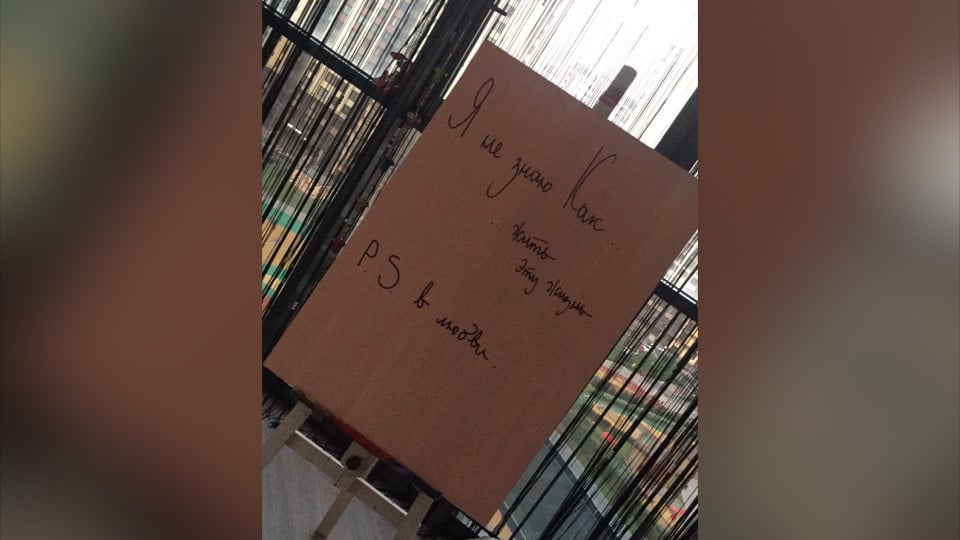 Я не знаю Как...
... жить
эту жизнь.
P.S. в любви.